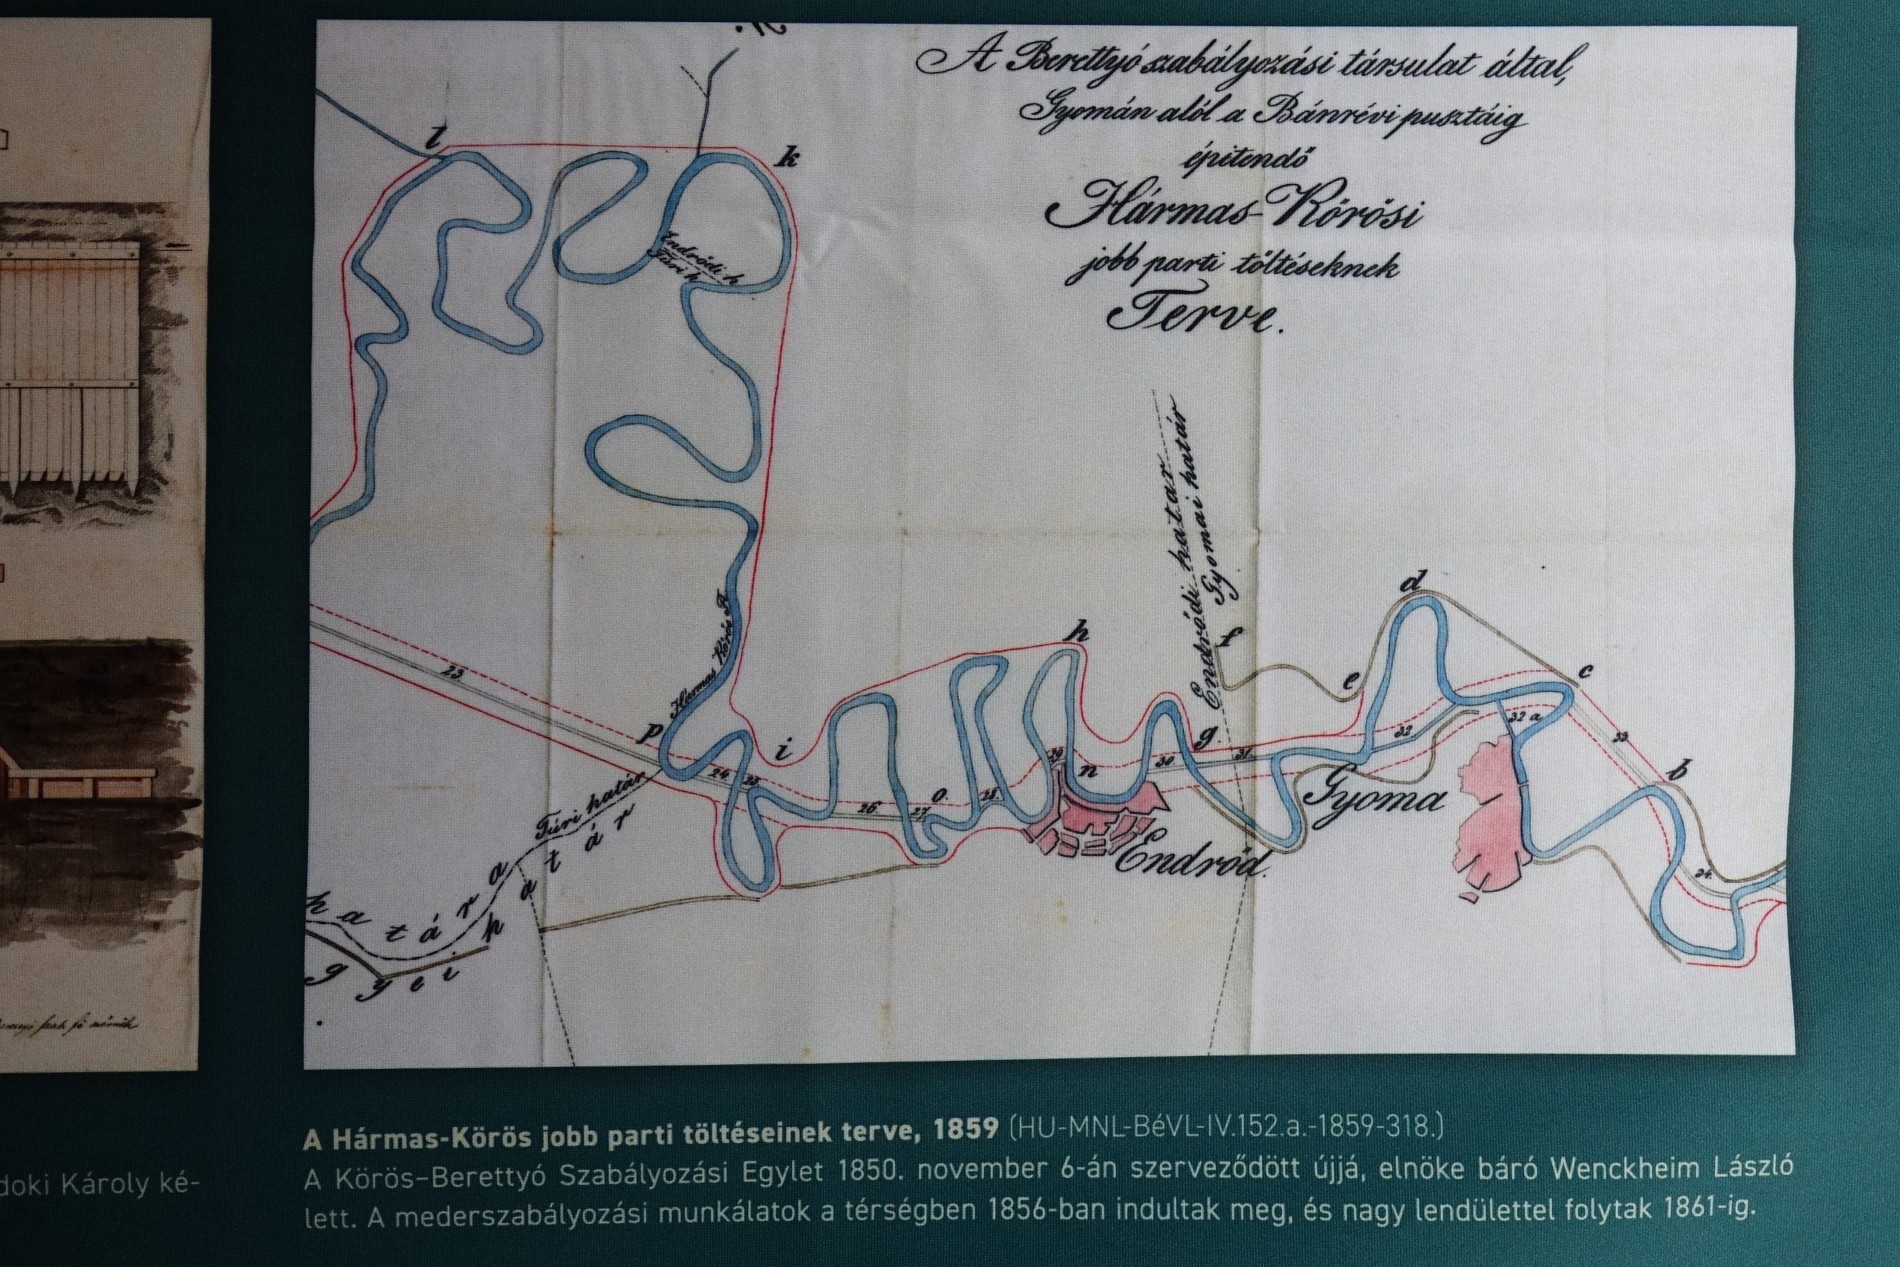 A Berettyó szabályozási társulat által,
Gyomán alól a Bánrévi pusztáig
épitendő
Hármas-Körösi
jobb parti töltéseknek
Terve.
l
k
Endrődi h
Túri h
Endrődi határ
Gyomai határ
d
f
h
e
c
Hármas Körös F.
23.
p
i
g.
32.
32 a
33.
b
24.
25.
29
n
30
31.
Gyoma
o.
26.
27.
28.
Túri határ
határ
Endrőd.
34.
határa
h
gyei
A Hármas-Körös jobb parti töltéseinek terve, 1859 (HU-MNL-BéVL-IV.152.a.-1859-318.)
A Körös–Berettyó Szabályozási Egylet 1850. november 6-án szerveződött újjá, elnöke báró Wenckheim László
lett. A mederszabályozási munkálatok a térségben 1856-ban indultak meg, és nagy lendülettel folytak 1861-ig.
doki Károly ké-